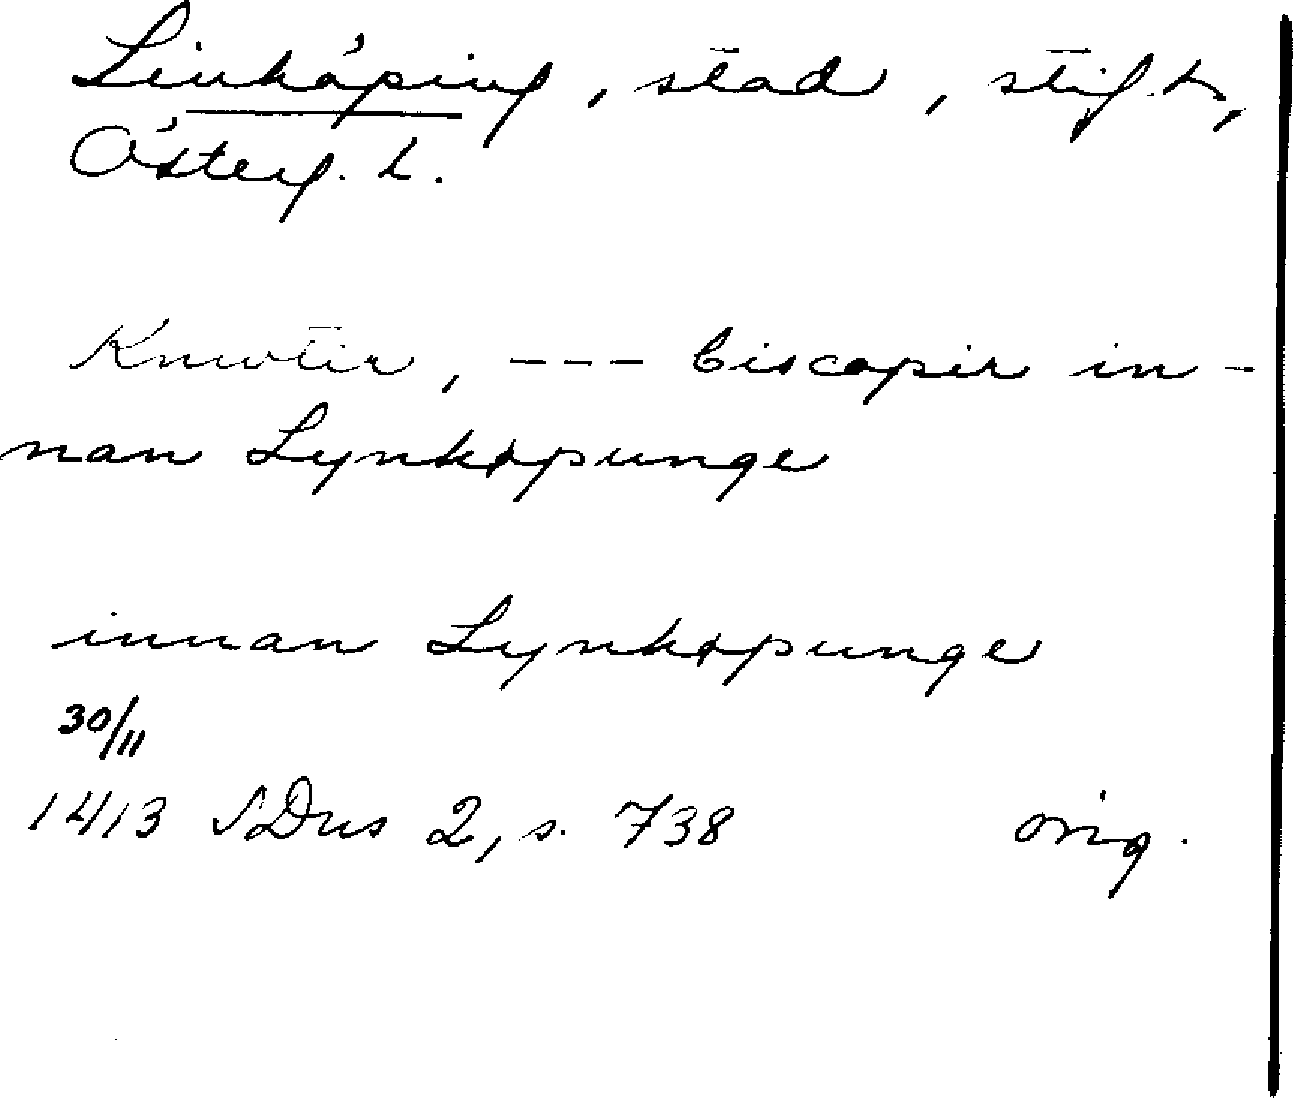 Linköping, stad, stift,
Österg. L.
Knwtir, --- biscopir in-
nan Lynkøpunge
innan Lynkøpunge
30/11
1413 SDns 2, s. 738 orig.